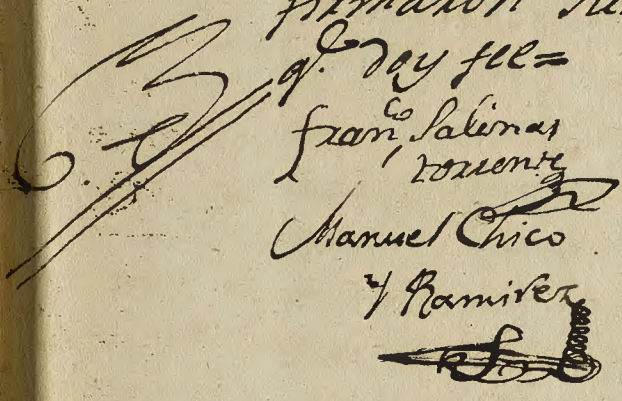 firmaron
q.e doy fee=
fran.co Salinas
torrente
Manuel Chico
Y Ramirez